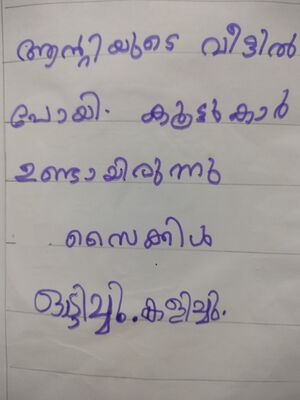 ആന്റിയുടെ വീട്ടിൽ
പോയി. കൂട്ടുകാർ
ഉണ്ടായിരുന്നു
സൈക്കിൾ
ഓട്ടിച്ചും. കളിച്ചു.